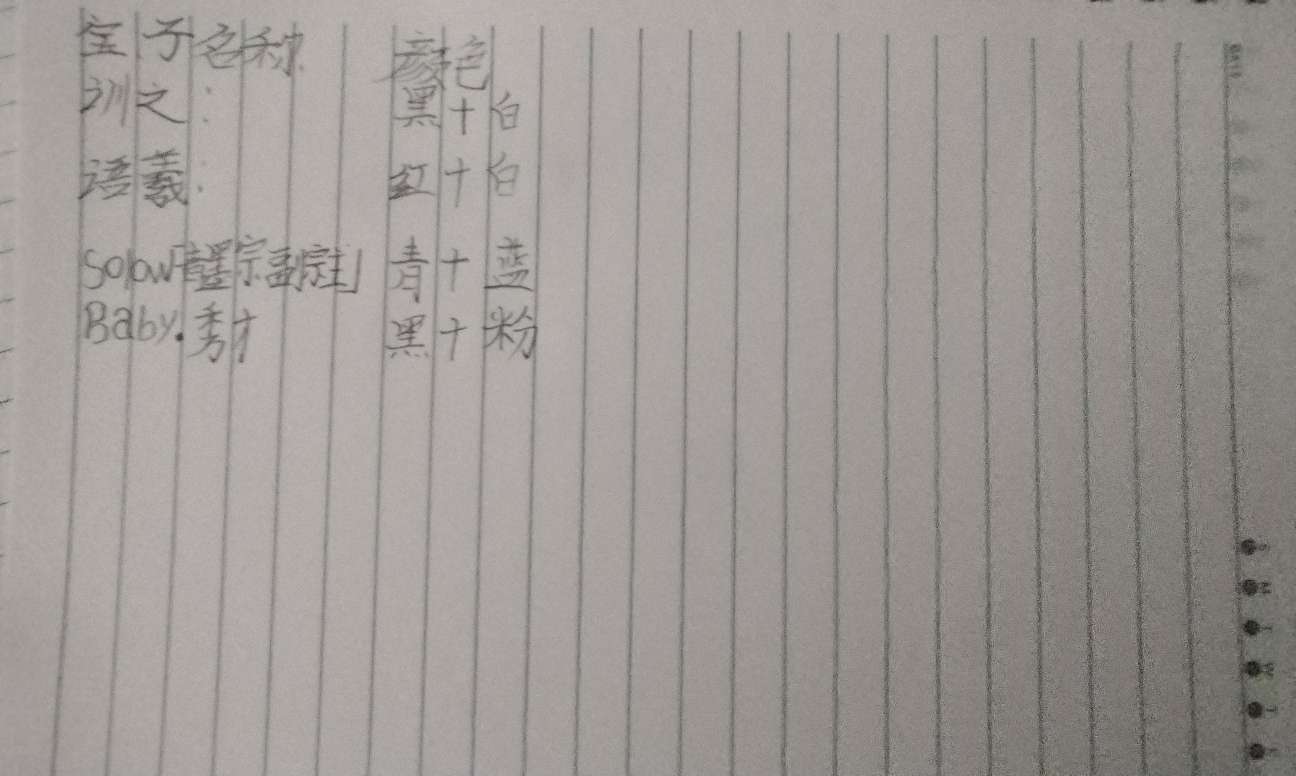 宝子名称 颜色
训之: 黑+白
语羲: 红+白
Solow「醫宗副宗主」 青+蓝
Baby.秀才 黑+粉